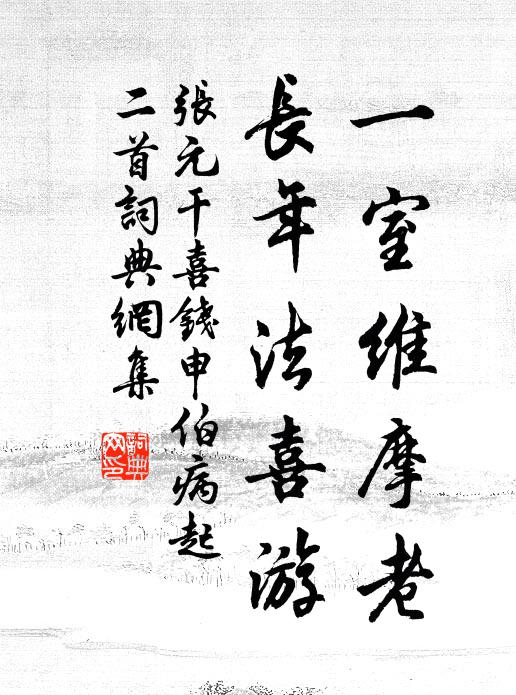 一室維摩老
長年法喜游
張元干喜錢申伯病起
二首詞典網集
詞典网印